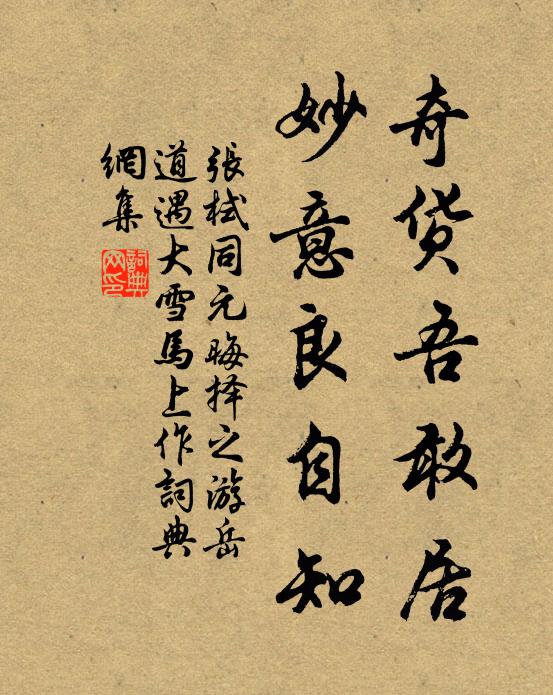 奇货吾敢居
妙意良自知
張栻同元晦择之游岳
道遇大雪馬上作詞典
網集
詞典
网印